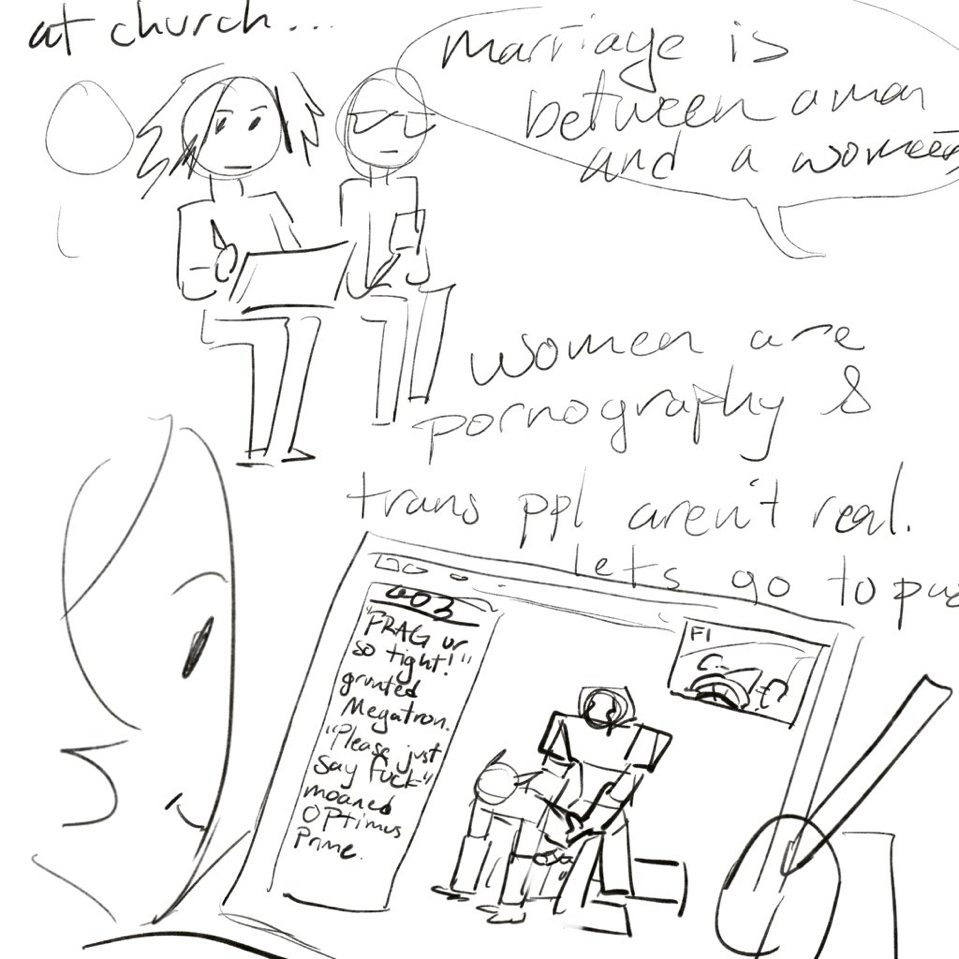 at church...
marriage is
between a man
and a
women are
pornography &
trans ppl aren't real.
lets go to
AO3
"FRAG ur
so tight!"
grunted
Megatron.
"Please just
say fuck"
moaned
Optimus
Prime.
F1